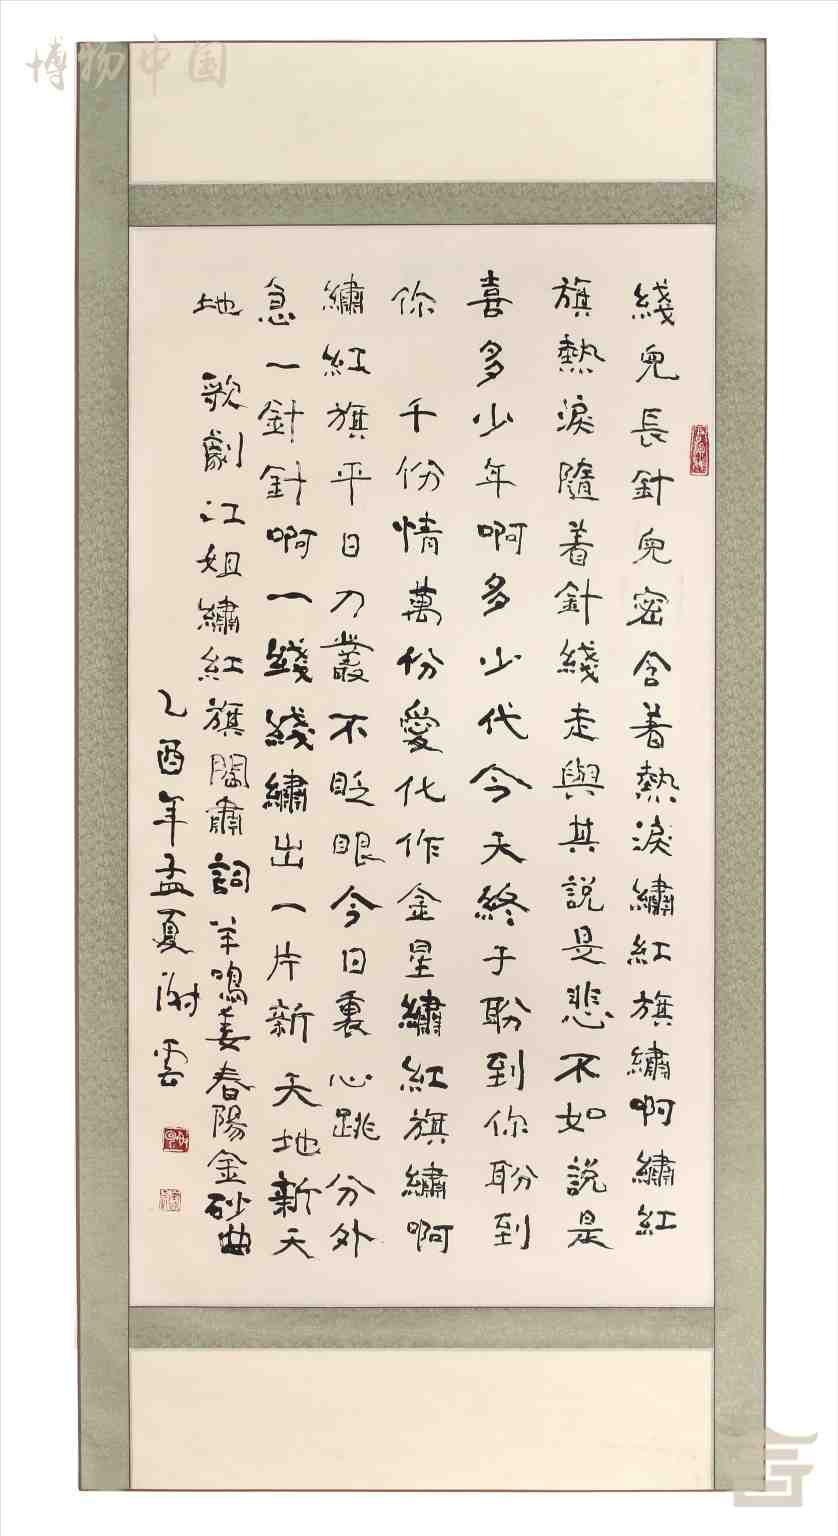 綫兒長針兒密含着熱淚繡紅旗繡啊繡紅
旗熱淚隨着針綫走與其說是悲不如說是
喜多少年啊多少代今天終于盼到你盼到
你 千份情萬份愛化作金星繡紅旗繡啊
繡紅旗平日刀叢不眨眼今日裏心跳分外
急一針針啊一綫綫繡出一片新天地新天
地 歌劇江姐繡紅旗閻肅詞羊鳴姜春陽金砂曲
乙酉年孟夏謝雲
博物中国